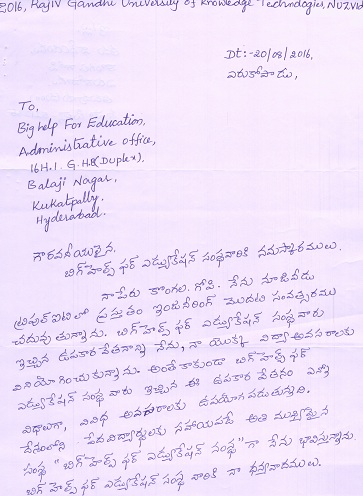 2016, Rajiv Gandhi University of Knowledge Technologies, NUZVID
Dt:-20/08/2016,
ఏరుకోపాడు,
To,
Bighelp For Education,
Administrative office,
16H.I.G.H.B(Duplex),
Balaji Nagar,
Kukatpally,
Hyderabad.
గౌరవనీయులైన,
బిగ్‌హెల్ప్ ఫర్ ఎడ్యుకేషన్ సంస్థవారికి నమస్కారములు.
నాపేరు కొంగల. గోపి. నేను నూజివీడు
ట్రిపుల్ ఐటిలో ప్రస్తుతం ఇంజనీరింగ్ మొదటి సంవత్సరము
చదువుతున్నాను. బిగ్‌హెల్ప్ ఫర్ ఎడ్యుకేషన్ సంస్థ వారు
ఇచ్చిన ఉపకార వేతనాన్ని నేను, నా యొక్క విద్యా అవసరాలకు
వినియోగించుకున్నాను. అంతేకాకుండా బిగ్‌హెల్ప్ ఫర్
ఎడ్యుకేషన్ సంస్థ వారు ఇచ్చిన ఈ ఉపకార వేతనం ఎన్నో
విధాలుగా, వివిధ అవసరాలకు ఉపయోగపడుతున్నది.
దేశంలోని పేదవిద్యార్థులకు సహాయపడే అతి ముఖ్యమైన
సంస్థ "బిగ్‌హెల్ప్ ఫర్ ఎడ్యుకేషన్ సంస్థ" గా నేను భావిస్తున్నాను.
బిగ్ హెల్ప్ ఫర్ ఎడ్యుకేషన్ సంస్థ వారికి నా ధన్యవాదములు.